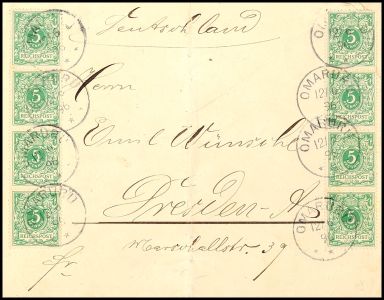 Deutschland
Herrn
Emil Wünsch
Dresden-A.
Marschallstr. 39
Fr.
5
REICHSPOST
5
REICHSPOST
5
REICHSPOST
5
REICHSPOST
5
REICHSPOST
5
REICHSPOST
5
REICHSPOST
5
REICHSPOST
OMARURU
12/6
96
OMARURU
12/6
96
OMARURU